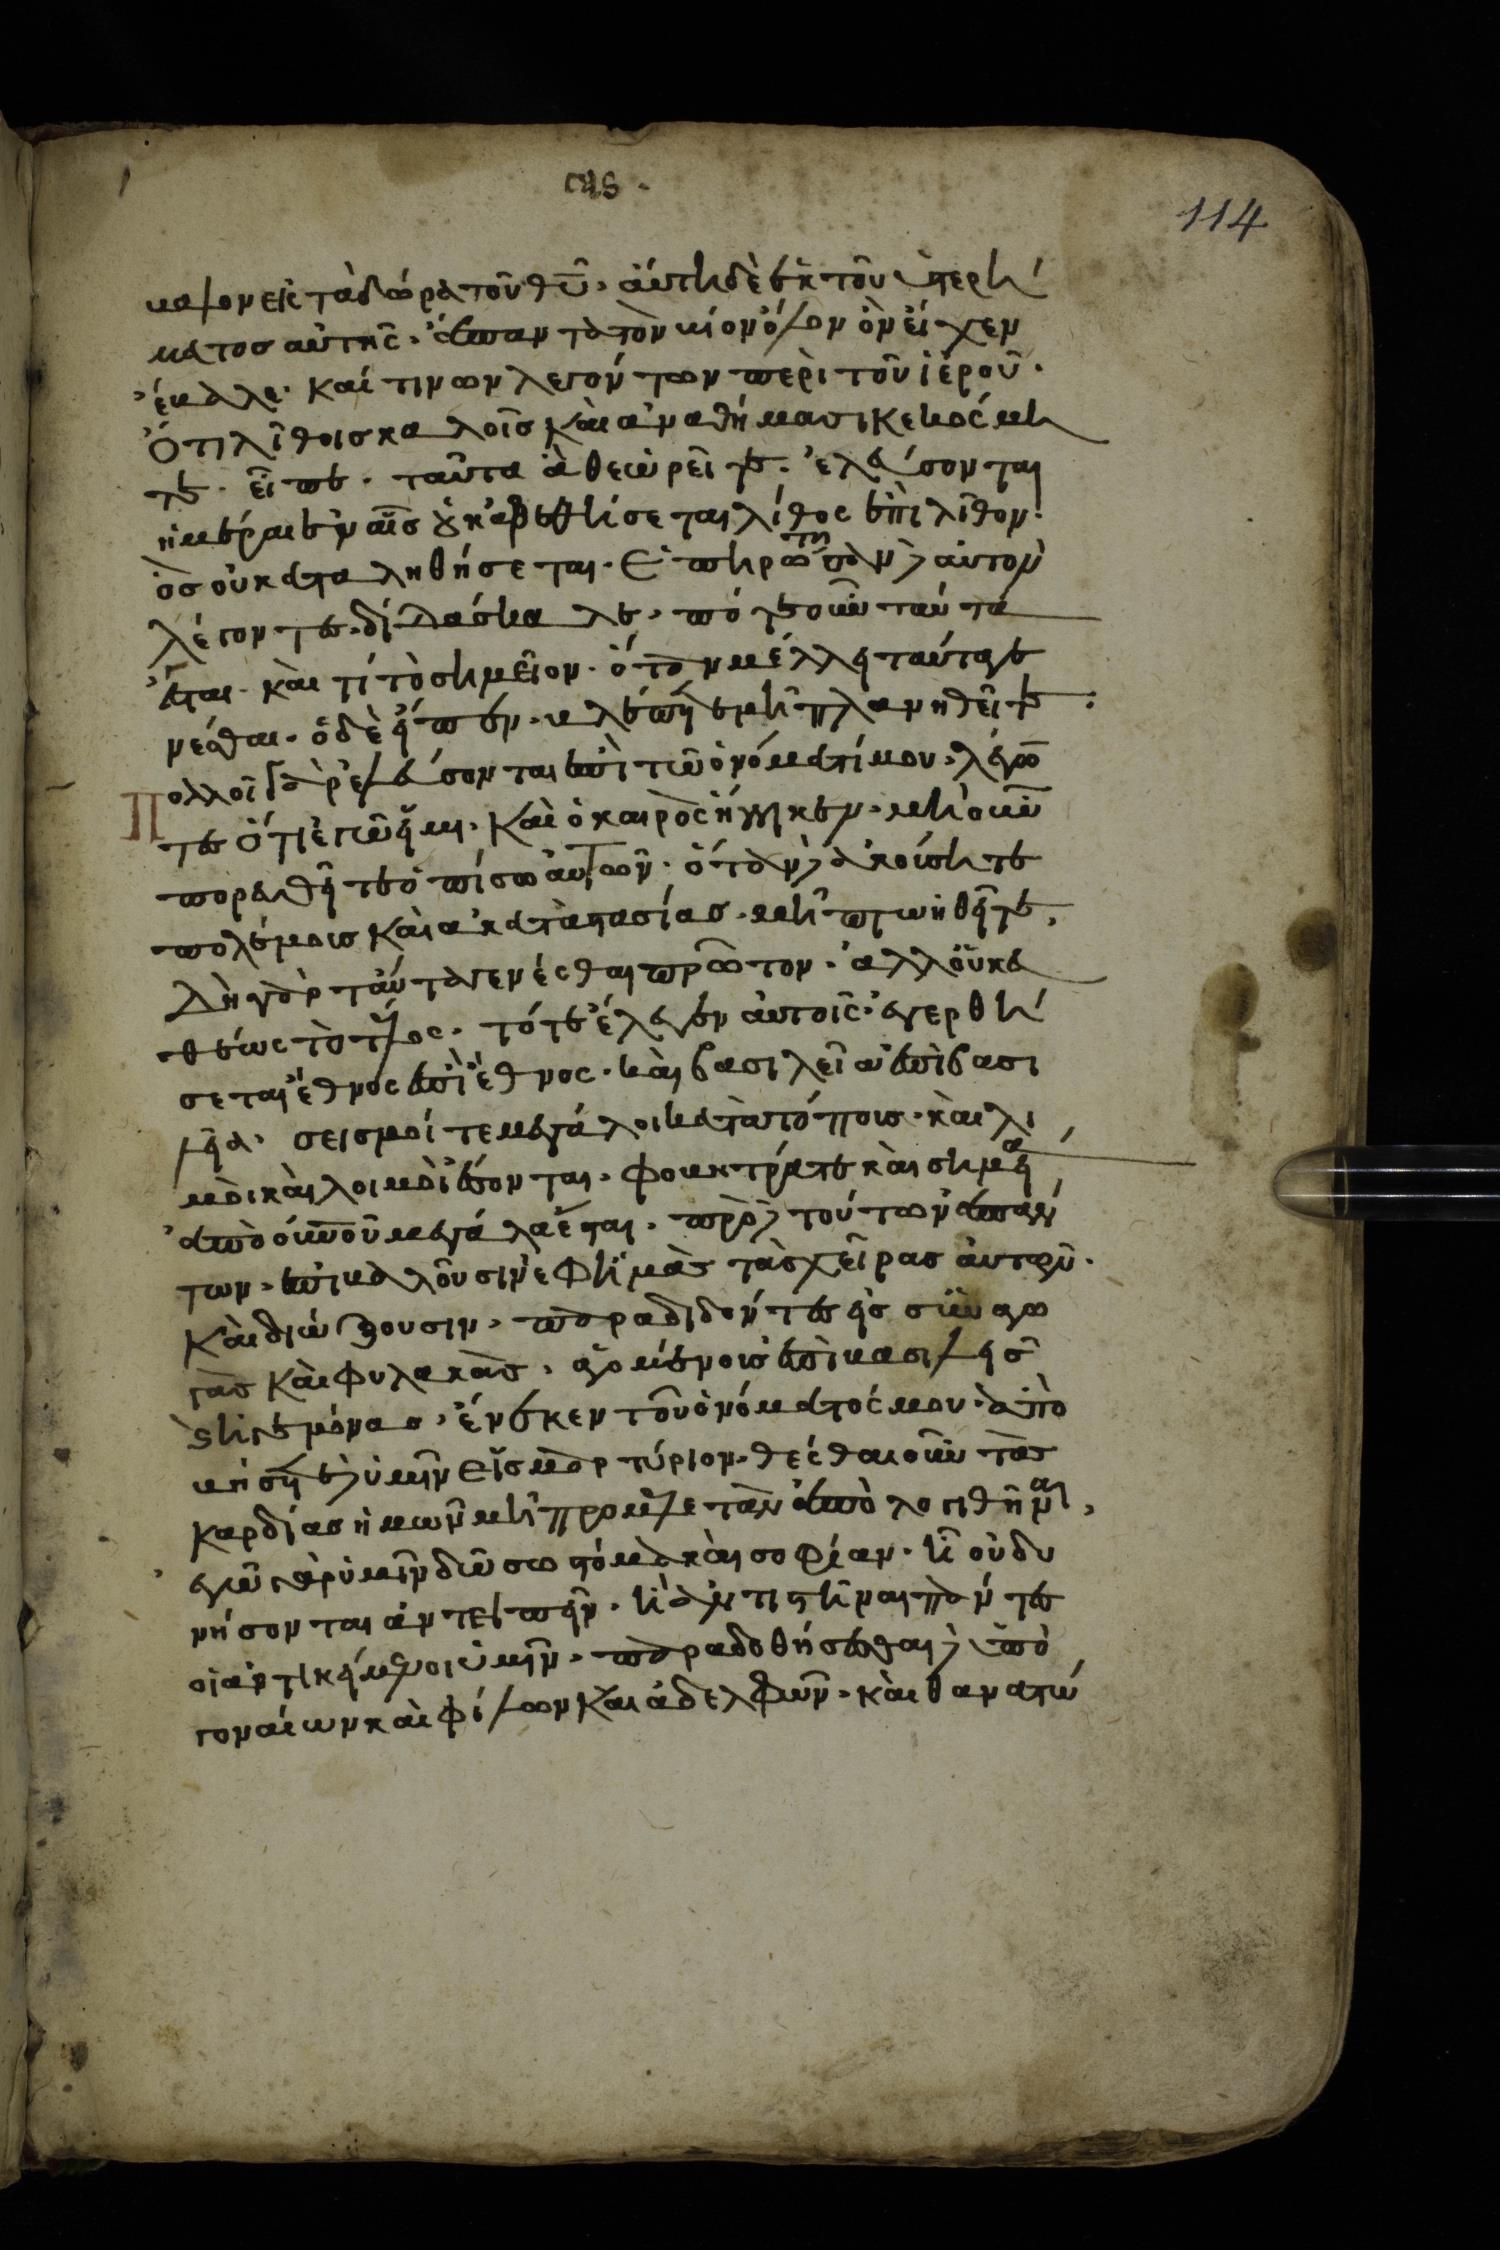 114
βαλον εἰς τὰ δῶρα τοῦ θῦ· ἀύτη δὲ ἐκ τοῦ ὑπερή
ματοσ αὐτῆς· ἅπαντα τὸν βίον ὅλον ὃν εἶχεν
ἔβαλε· καί τινων λεγόντων περὶ τοῦ ἱεροῦ·
Ὅτι λίθοισ καλοῖσ καὶ αναθήμασι κεκοσμη
τε· εἶπε· ταῦτα ἃ θεωρεῖτε· ἐλεύσονται
ἡμέραι ἐν αἷσ οὐκ ἀφεθήσεται λίθος ἐπὶ λίθον·
ὃσ οὐ καταληθήσεται· Ἐπηρώτησαν αὐτὸν
λέγοντες· διδάσκαλε· πότε οὖν ταῦτα
ἔσται· καὶ τί τὸ σημεῖον· ὅταν μέλλει ταῦτα γε
νέσθαι· ὁ δὲ εἶπεν· βλέπετε μὴ πλανηθεῖτε·
Πολλοὶ γὰρ ἐλεύσονται ἐπὶ τῶ ὀνόματί μου· λέγον
τες ὅτι ἐγώ εἰμι· καὶ ὁ καιρὸς ἤγγικεν· μὴ οὖν
πορευθῆτε ὀπίσω αὐτῶν· ὅταν δὲ ἀκούσητε
πολέμοισ καὶ ακαταστασίασ· μὴ πτωηθῆτε·
Δεῖ γὰρ ταῦτα γενέσθαι πρῶτον· ἀλλ οὐκ ἐυ
θέως τὸ τέλος· τότε ἔλεγεν αὐτοῖς· ἐγερθή
σεται ἔθνος ἐπὶ ἔθνος· καὶ βασιλεία ἐπὶ βασι
λεία· σεισμοί τε μεγάλοι κατα τόποις· καὶ λι
μοὶ καὶ λοιμοὶ ἔσονται· φοβητρά τε καὶ σημεῖα
ἀπὸ οὐνοῦ μεγάλα ἔσται· πρὸ δὲ τούτων ἁπάν
των· ἐπιβαλοῦσιν ἐφ ημᾶς τὰσ χεῖρασ ἀυτῶν·
καὶ διώξουσιν· παραδιδόντες εἰσ συναγω
γὰσ καὶ φυλακάσ· ἀγομένοισ ἐπὶ βασιλεῖσ
ἢ ἡγεμόνασ· ἕνεκεν τοῦ ὀνόματός μου· ἀπο
βήσεται δὲ ὑμῖν εἰσ μαρτύριον· θέσθαι οὖν τὰς
καρδίασ ἡμῶν μὴ προμελετᾶν ἀπολογιθῆναι·
ἐγὼ γὰρ ὑμῖν δώσω στόμα καὶ σοφίαν· ἧ οὐ δυ
νήσονται ἀντειπεῖν· ἢ ἀντιστῆναι πάντες
οἱ ἀντικείμενοι ὑμῖν· παραδοθήσεσθαι δὲ ὑπὸ
γοναίων καὶ φίλων καὶ ἀδελφῶν· καὶ θανατώ